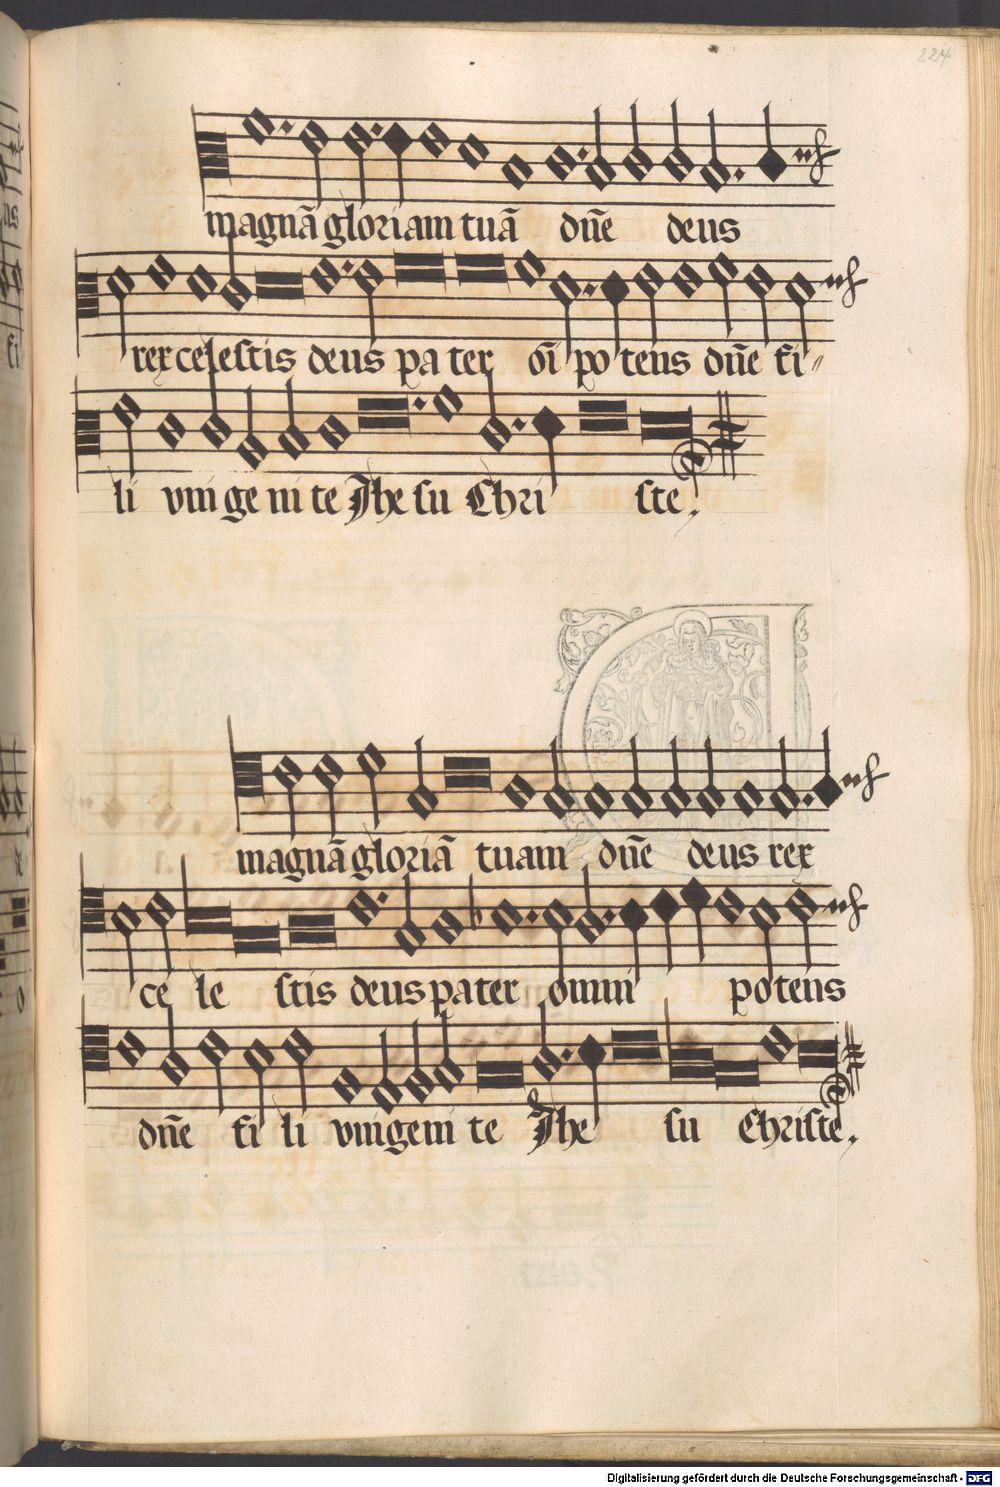 224
magnā gloriam tuā dn̄e deus
rex celestis deus pa ter oī po tens dn̄e fi〃
li vni ge ni te Jhe su Chri ste.
magnā gloriā tuam dn̄e deus rex
ce le stis deus pater omni potens
dn̄e fi li vnigeni te Jhe su Christe.
Digitalisierung gefördert durch die Deutsche Forschungsgemeinschaft - DFG